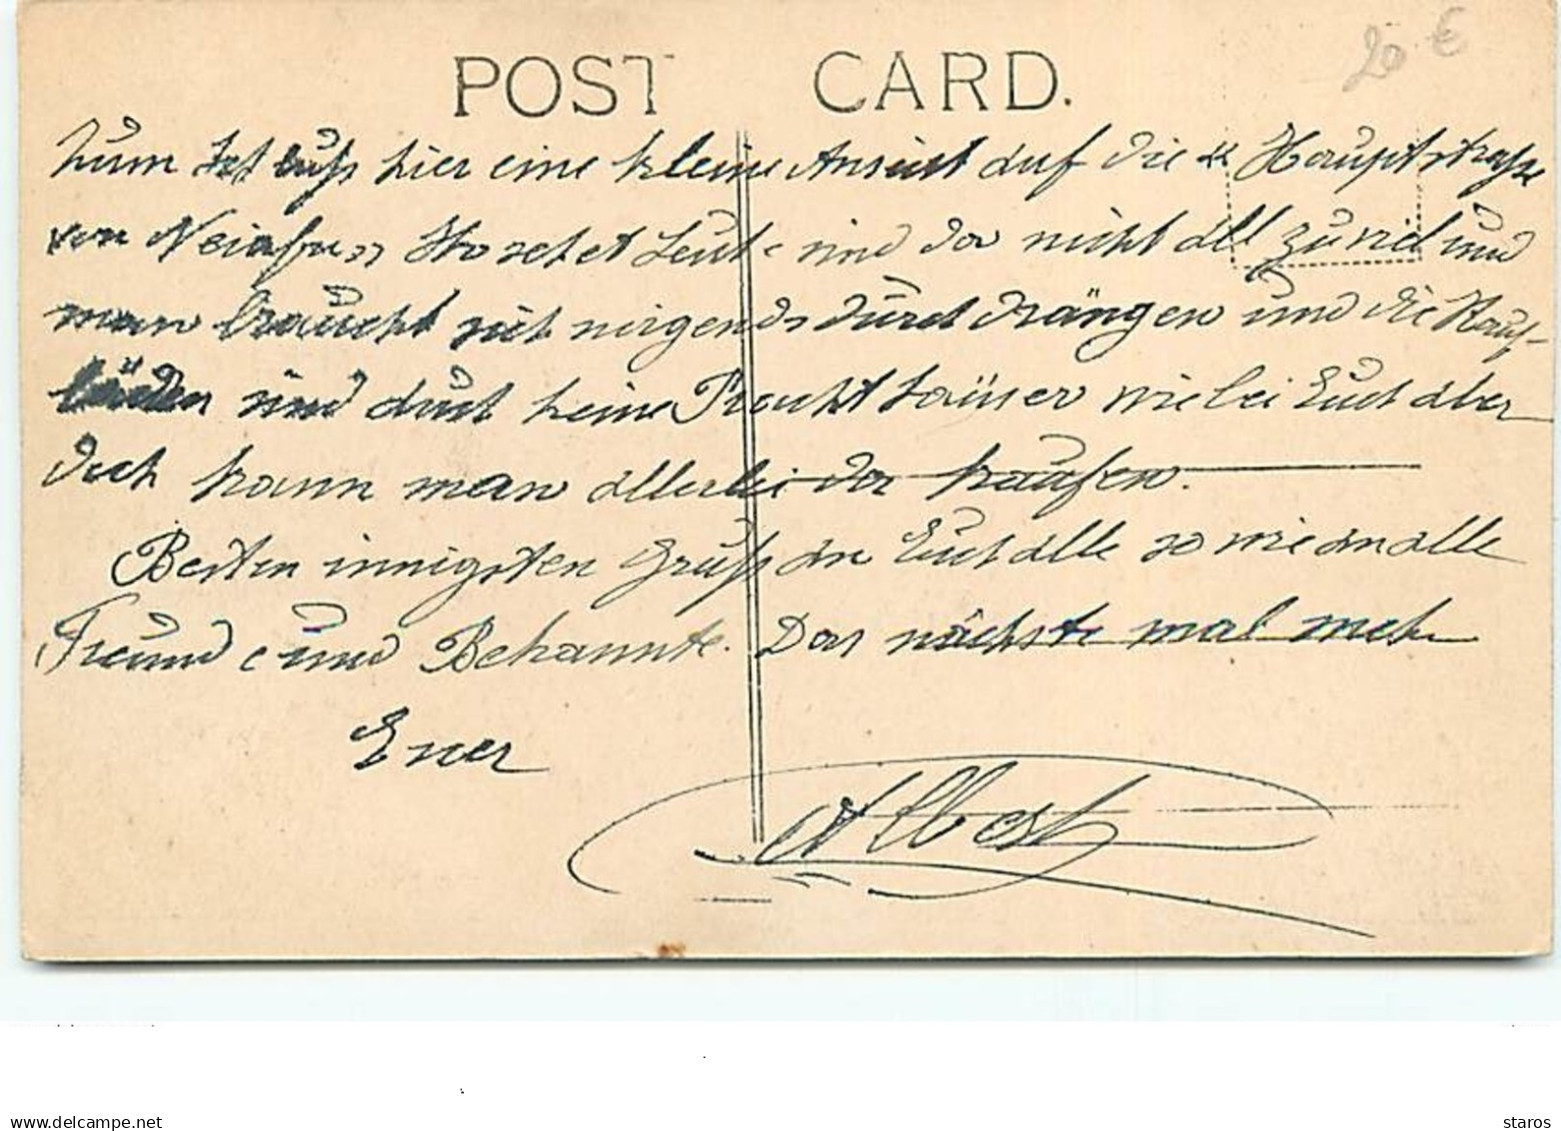 20 €
POST CARD.
Zum hier eine kleine Ansicht auf die "Hauptstrasse
von Neiafu" sind da nicht all zu viel und
man braucht sich nirgends durch drängen und die Kauf-
läden sind auch keine Pracht häuser wie bei Euch aber
doch kann man allerlei da kaufen.
Besten innigsten Gruß an Euch alle so wie an alle
Freunde und Bekannte. Das nächste mal mehr
Euer
Albert
www.delcampe.net
staros